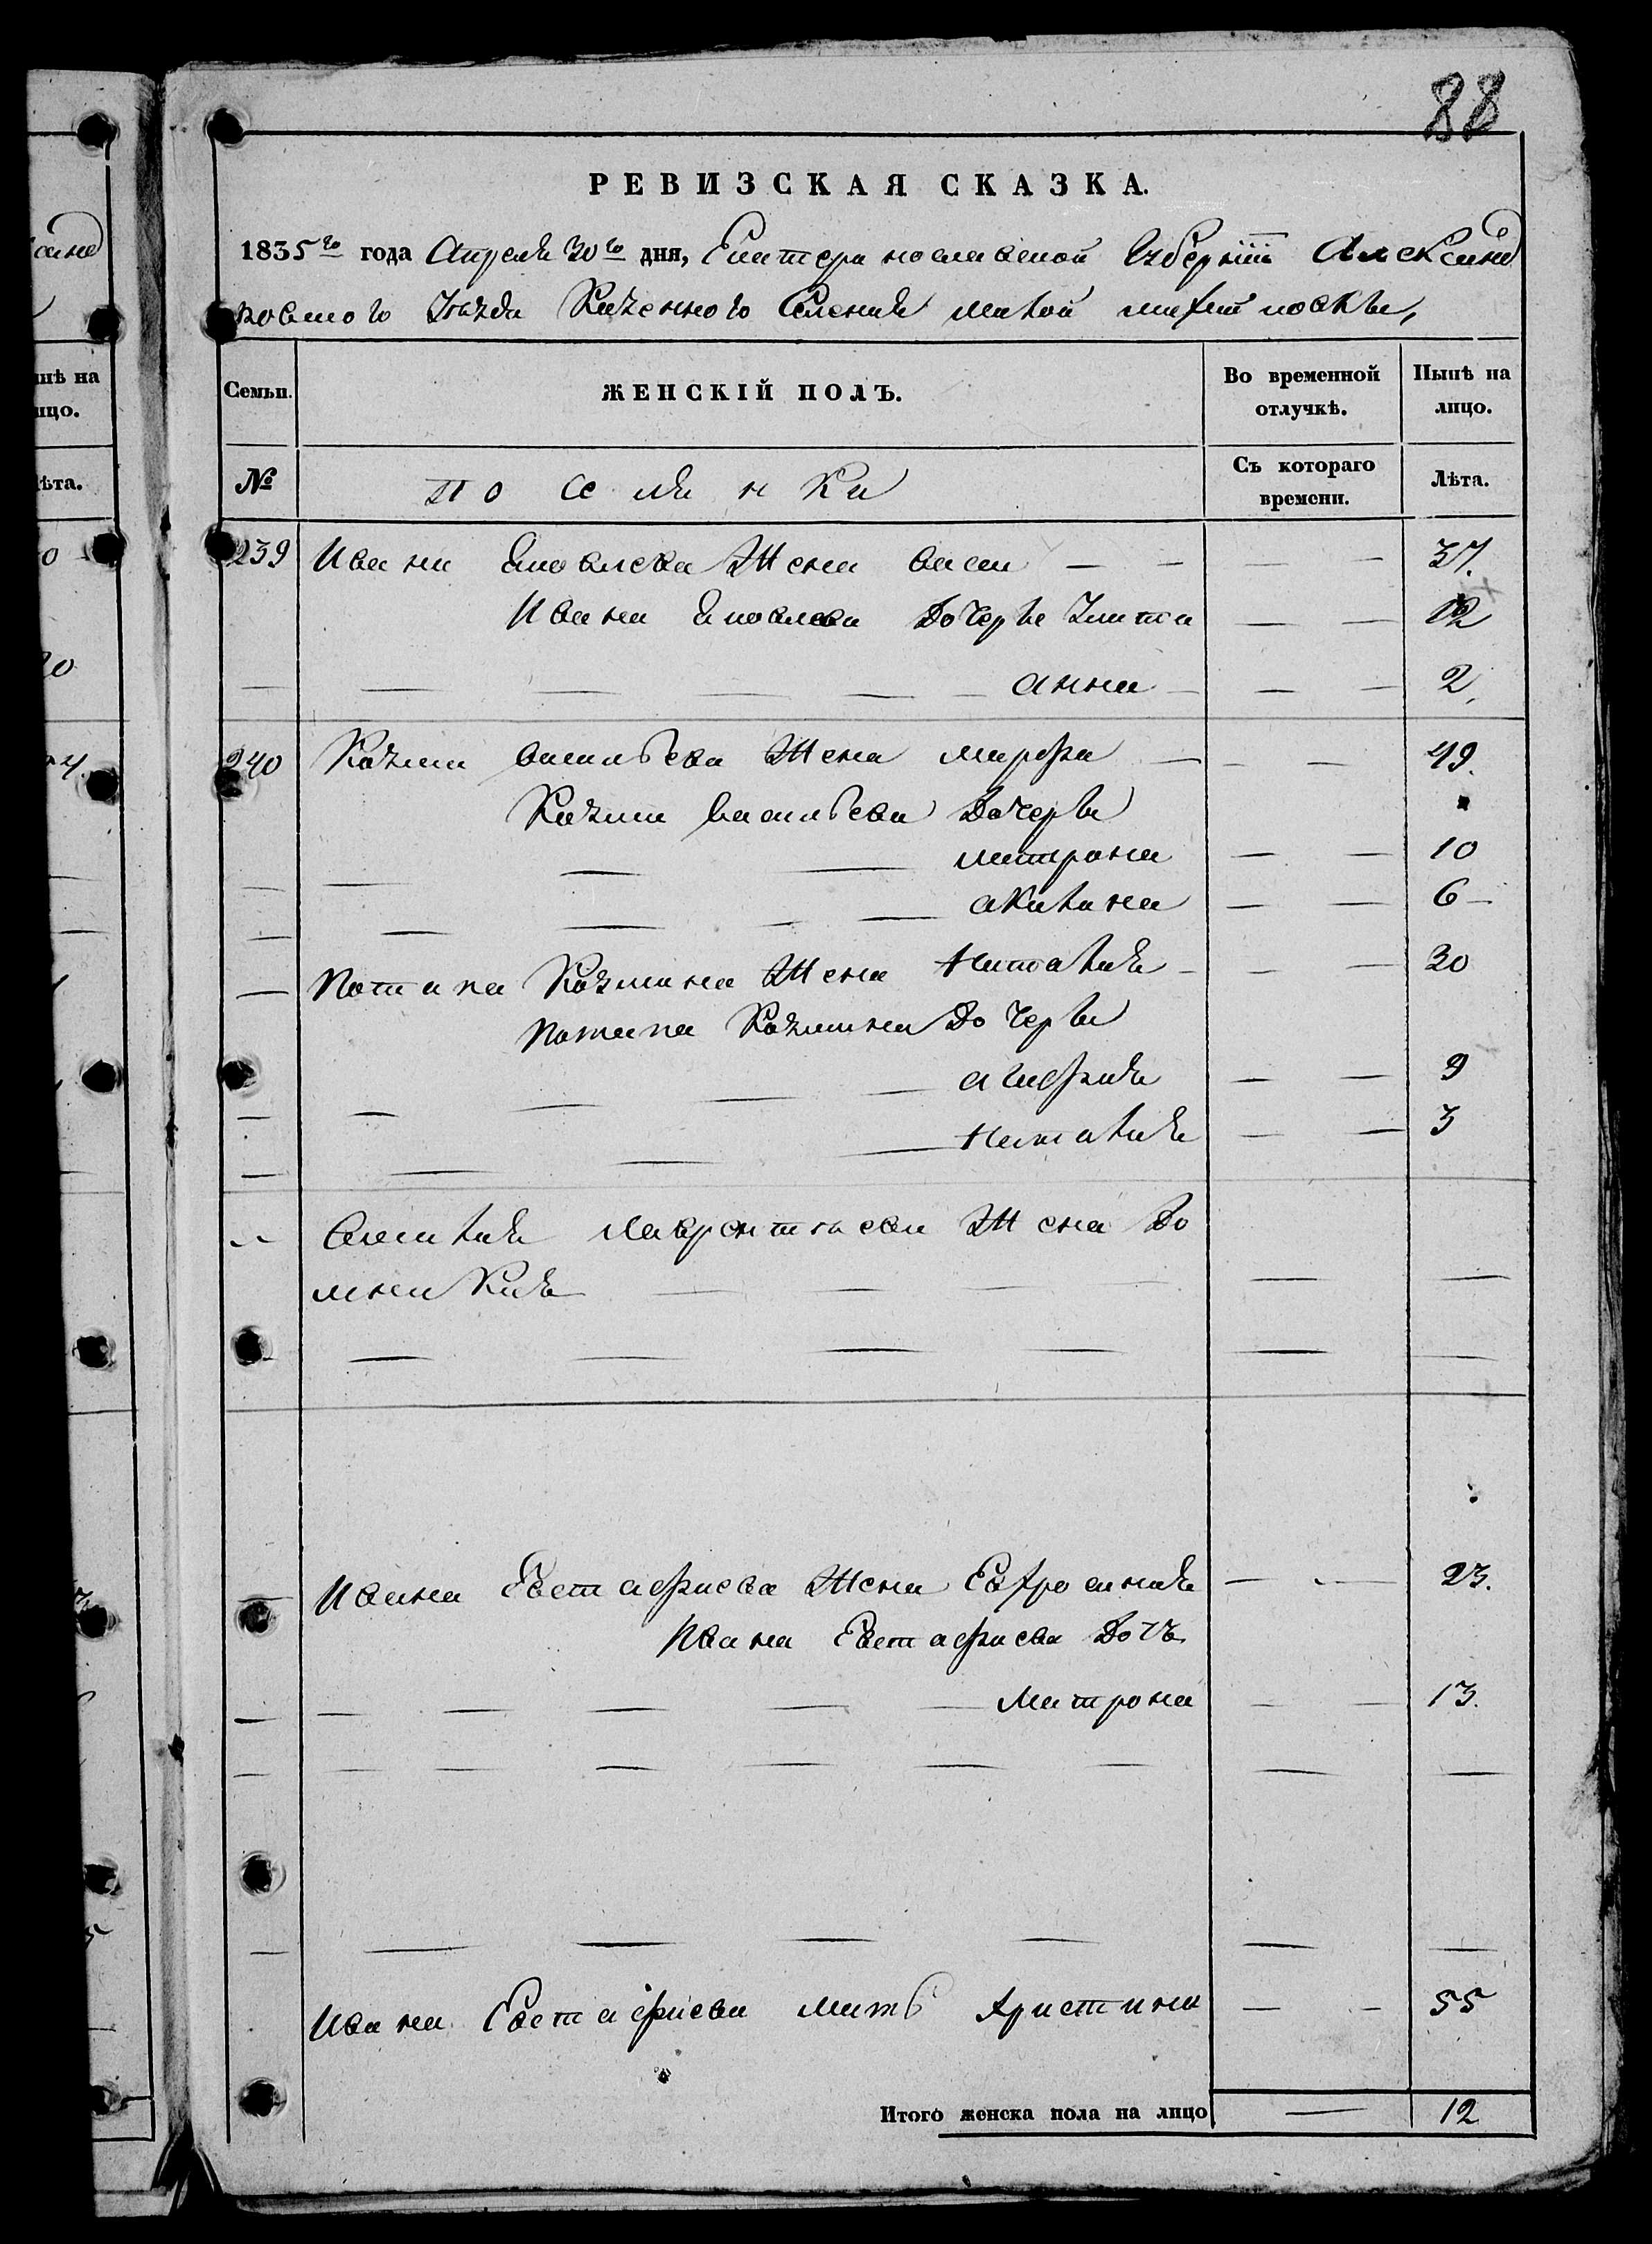 88
РЕВИЗСКАЯ СКАЗКА.
1835го года Апреля 30го дня, Екатеринославской Губернии Александ
ровского Уезда Казенного Селения Малой михайловки,
Семьи.
ЖЕНСКІЙ ПОЛЪ.
Во временной отлучкѣ.
Нынѣ на лицо.
№
поселянки
Съ котораго времени.
Лѣта.
239 Ивана Яковлева Жена васса — — — — 37.
Ивана Яковлева Дочери Улита — — 12
— — — — — — анна — — — 2,
240 Козмы васильева Жена марфа — — — 49.
Козмы васильева Дочери
— — — матрона — — 10
— — — — — акилина — — 6 —
— Потапа Козмина Жена наталия — — — 30
Потапа Козмина Дочери
— — — — — агафия — — 9
— — — — наталия — — 3
Савелия Лаврентьева Жена До
мникия — — — — —
— — — — — —
— Ивана Евстафиева Жена Евфросиния — — 23.
Ивана Евстафиева Дочь
— — — — — — Матрона — — 13.
— — — — — — — — —
— — — — — — —
Ивана Евстафиева мать христина — — 55
Итого женска пола на лицо — 12
нѣ на
ицо.
ѣта.